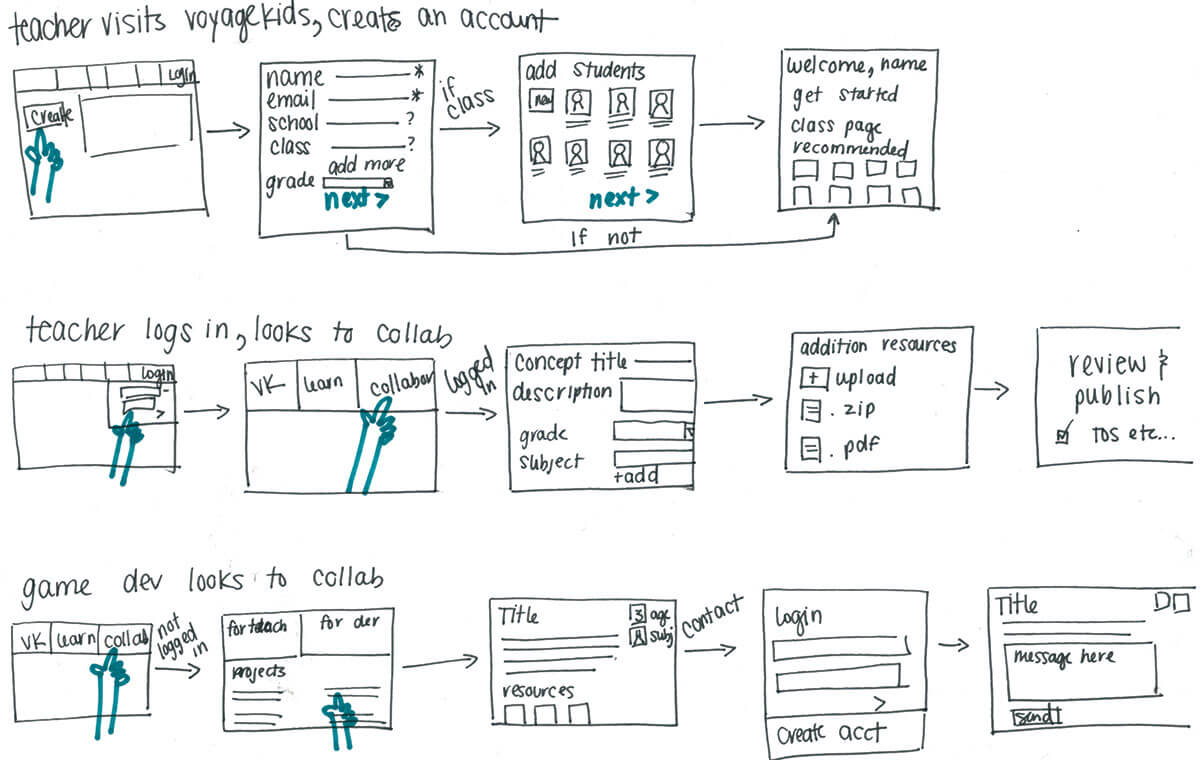 teacher visits voyagekids, creates an account
Login
Create
name *
email *
school ?
class ?
add more
grade
next >
if class
add students
new
next >
If not
welcome, name
get started
class page
recommended
teacher logs in, looks to collab
Login
>
VK learn collabor
logged in
concept title
description
grade
subject
+add
addition resources
+ upload
.zip
.pdf
review &
publish
TOS etc...
game dev looks to collab
VK learn collab
not logged in
for teach for dev
projects
Title
3 age
subj
resources
contact
login
>
create acct
Title
message here
send